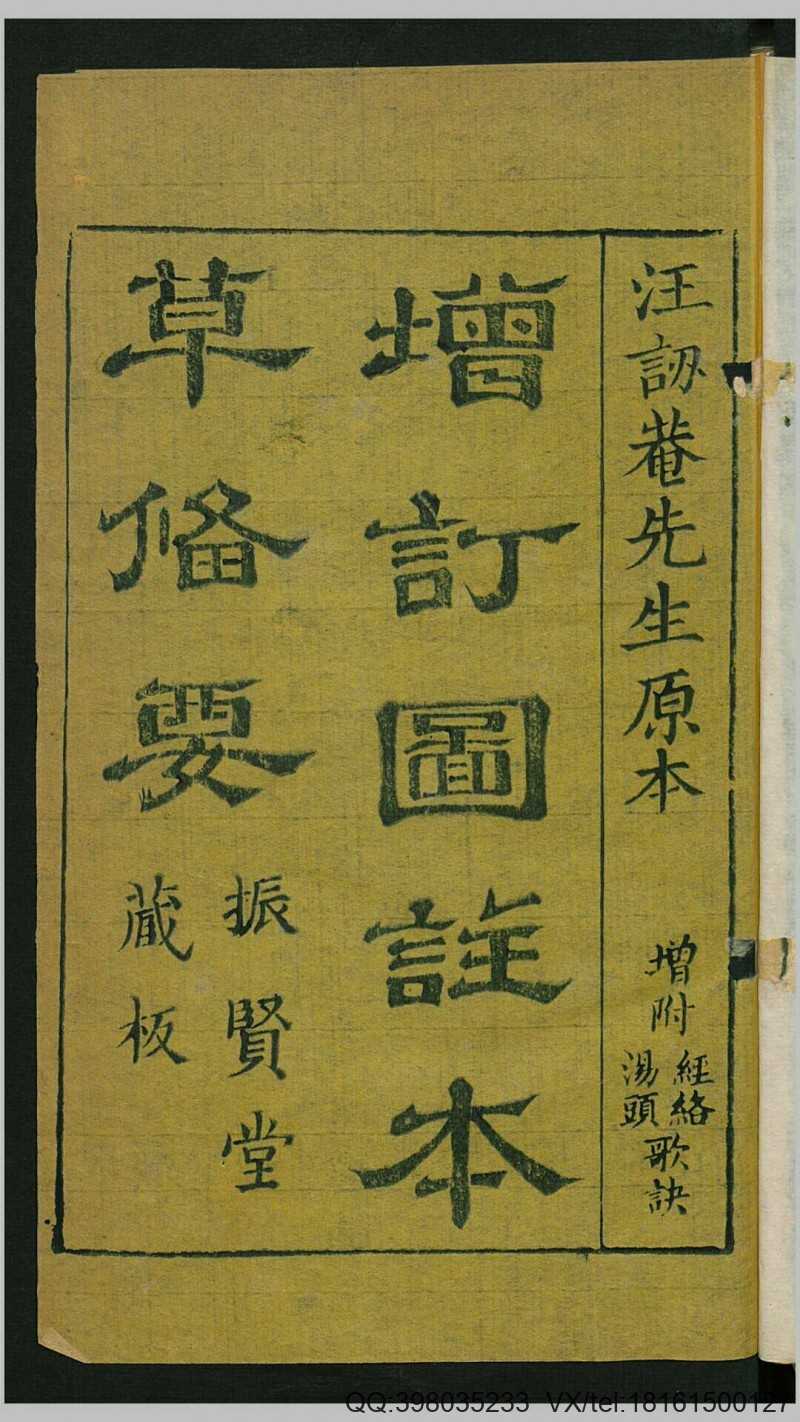 汪訒菴先生原本
增附
經絡
湯頭
歌訣
增訂圖註本
草俻要
振賢堂
藏板
QQ:398035233 VX/tel:18161500127